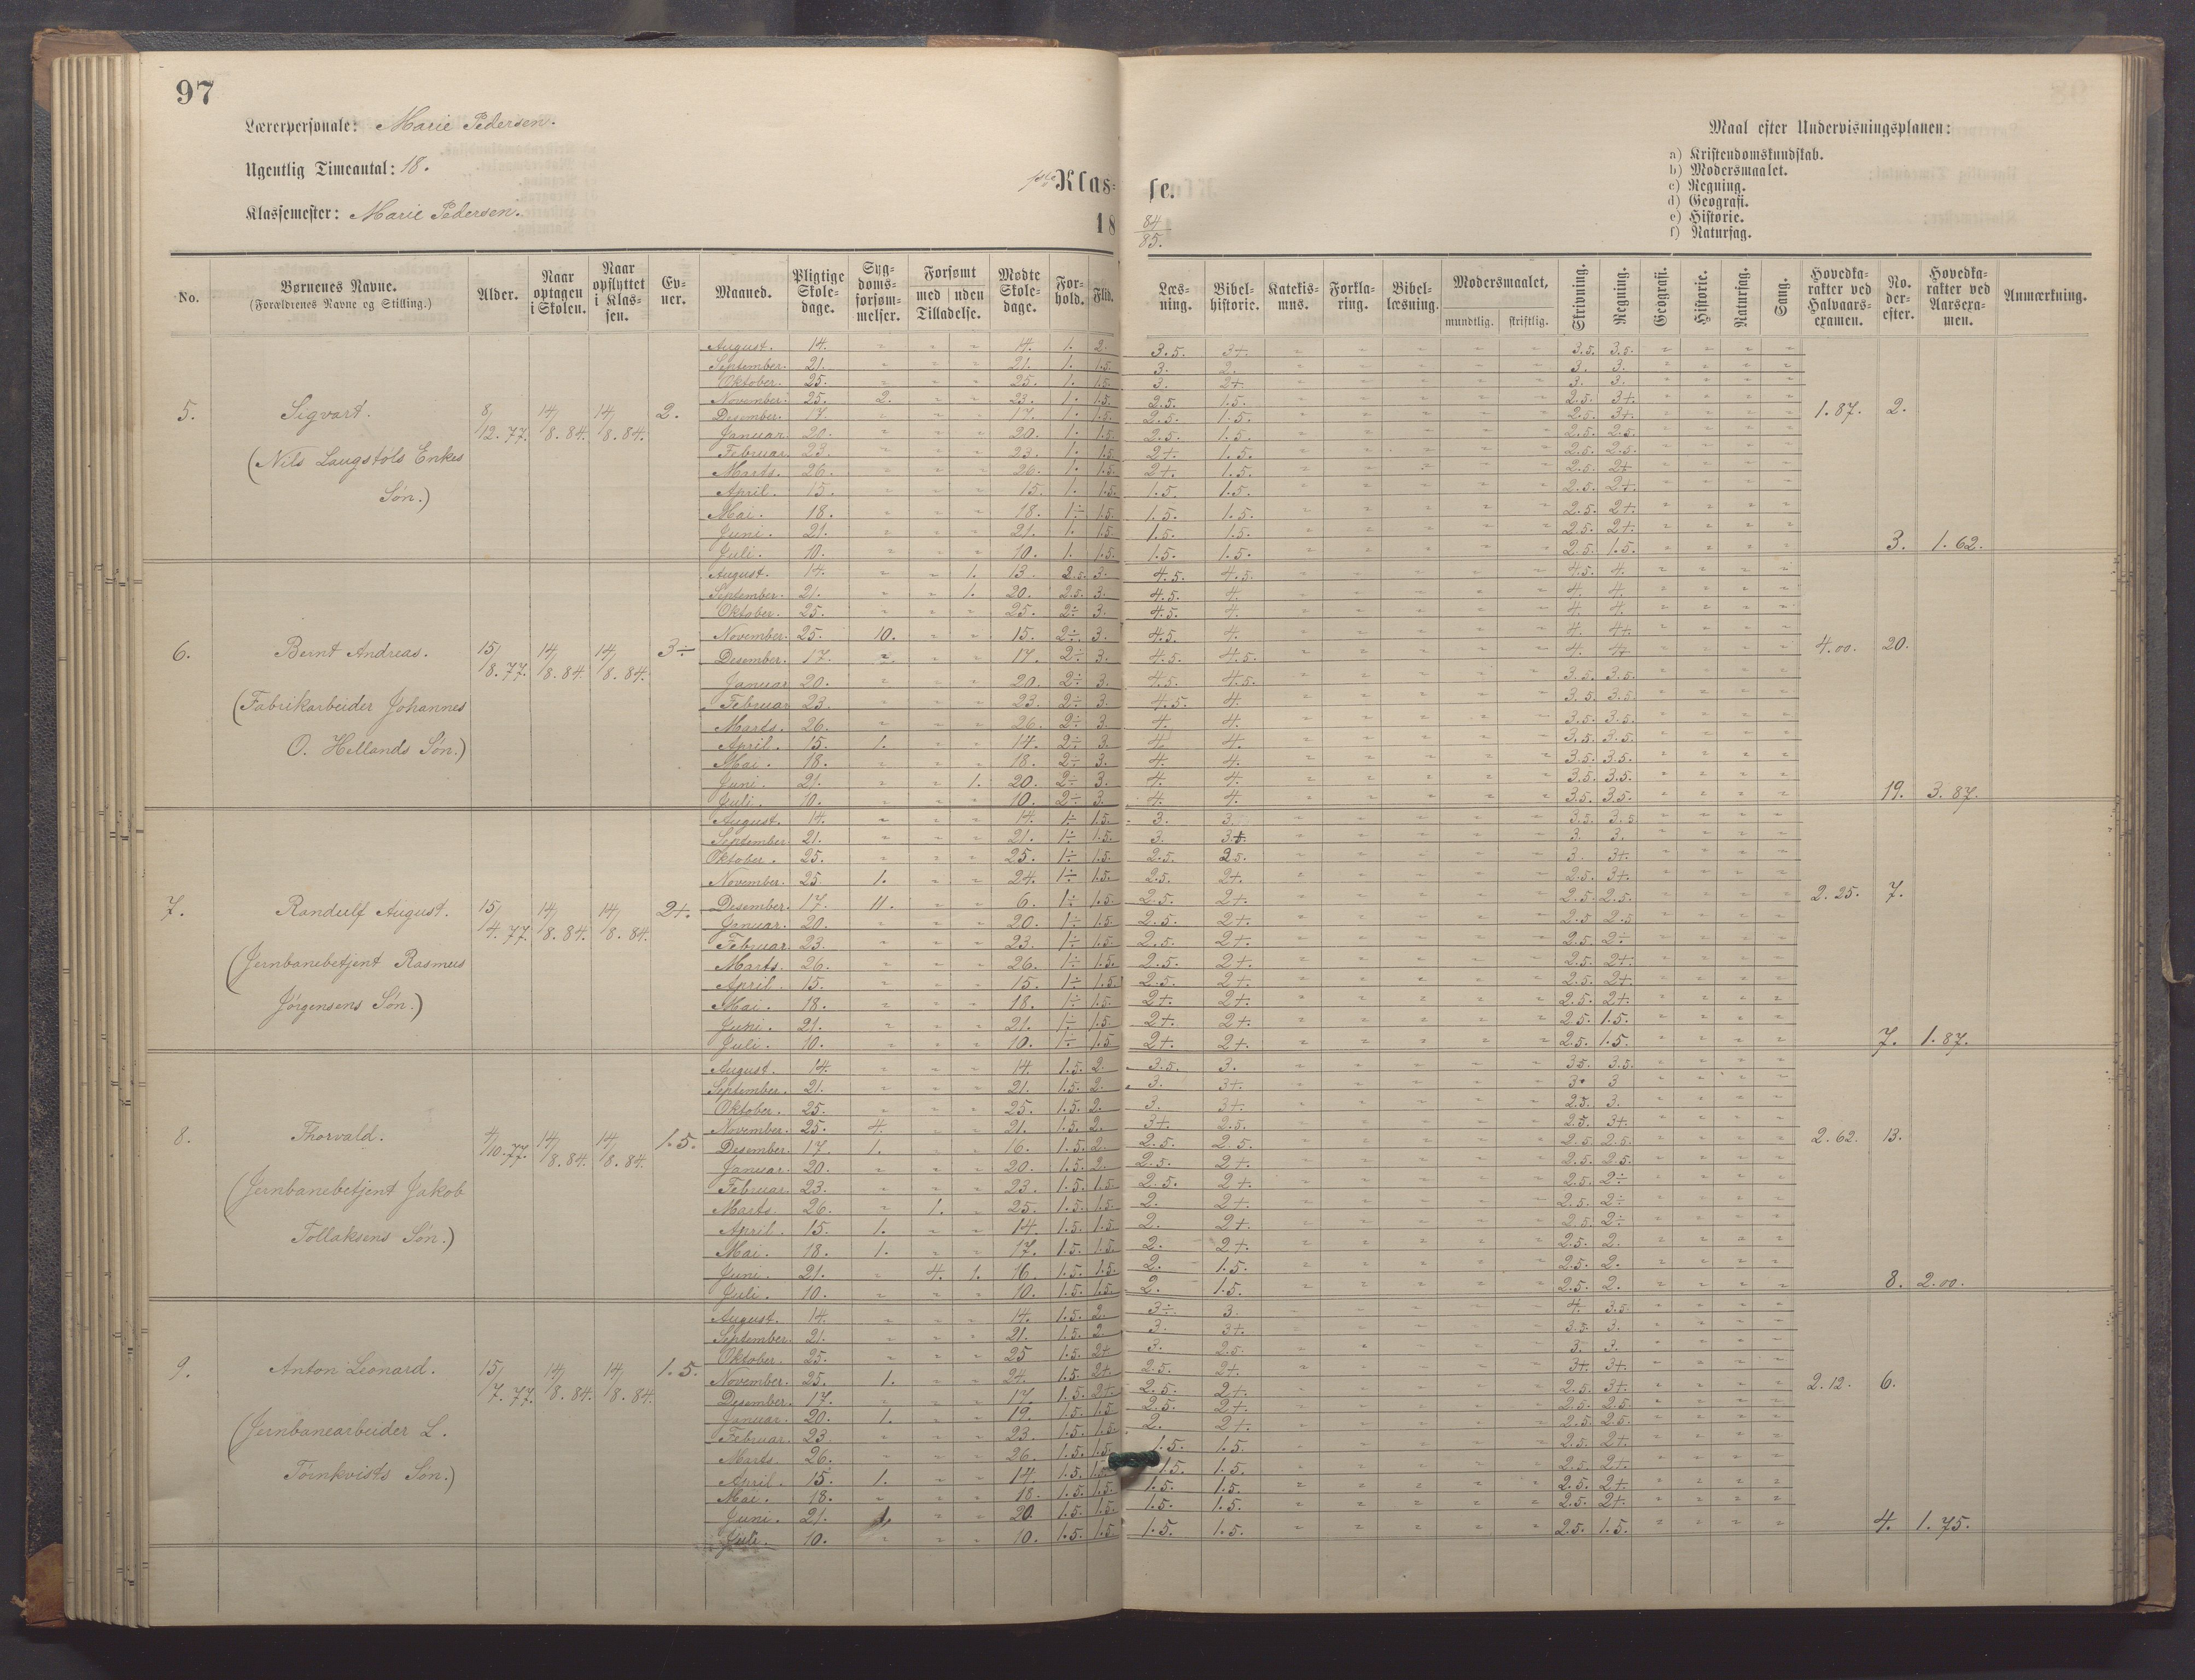 97
Lærerpersonale: Marie Pedersen.
Ugentlig Timeantal: 18.
Klassemester: Marie Pedersen.
1ste Klasse.
1884/85.
Maal efter Undervisningsplanen:
a) Kristendomskundskab.
b) Modersmaalet.
c) Regning.
d) Geografi.
e) Historie.
f) Naturfag.
No. | Børnenes Navne. (Forældrenes Navne og Stilling.) | Alder. | Naar optagen i Skolen. | Naar opflyttet i Klassen. | Evner. | Maaned. | Pligtige Skoledage. | Sygdomsforsømmelser. | Forsømt med uden Tilladelse. | Mødte Skoledage. | Forhold. | Flid. | Læsning. | Bibelhistorie. | Katekismus. | Forklaring. | Bibellæsning. | Modersmaalet, mundtlig. skriftlig. | Skrivning. | Regning. | Geografi. | Historie. | Naturfag. | Sang. | Hovedkarakter ved Halvaarsexamen. | No. derefter. | Hovedkarakter ved Aarsexamen. | Anmærkning.
5. Sigvart. 8/12.77. 14/8.84. 14/8.84. 2. 1.87. 2.
(Nils Laugstøls Enkes
Søn.)
August. 14. " " " 14. 1. 2. 3.5. 3+. 3.5. 3.5.
September. 21. " " " 21. 1. 1.5. 3. 2. 3. 3.
Oktober. 25. " " " 25. 1. 1.5. 3. 2+. 3. 3.
November. 25. 2. " " 23. 1. 1.5. 2.5. 1.5. 2.5. 3+.
Desember. 17. " " " 17. 1. 1.5. 2.5. 1.5. 2.5. 3+.
Januar. 20. " " " 20. 1. 1.5. 2.5. 1.5. 2.5. 2.5.
Februar. 23. " " " 23. 1. 1.5. 2+. 1.5. 2.5. 2.5.
Marts. 26. " " " 26. 1. 1.5. 2+. 1.5. 2.5. 2+
April. 15. " " " 15. 1. 1.5. 1.5. 1.5. 2.5. 2+.
Mai. 18. " " " 18. 1÷ 1.5. 1.5. 1.5. 2.5. 2+.
Juni. 21. " " " 21. 1. 1.5. 1.5. 1.5. 2.5. 2+.
Juli. 10. " " " 10. 1. 1.5. 1.5. 1.5. 2.5. 1.5. 3. 1.62.
6. Bernt Andreas. 15/8.77. 14/8.84. 14/8.84. 3÷ 4.00. 20.
(Fabrikarbeider Johannes
O. Hellands Søn.)
August. 14. " " 1. 13. 2.5. 3. 4.5. 4.5. 4.5. 4.
September. 21. " " 1. 20. 2.5. 3. 4.5. 4. 4. 4.
Oktober. 25. " " " 25. 2÷ 3. 4.5. 4. 4. 4.
November. 25. 10. " " 15. 2÷ 3. 4.5. 4. 4. 4+.
Desember. 17. " " " 17. 2÷ 3. 4.5. 4.5. 4. 4+
Januar 20. " " " 20. 2÷ 3. 4.5. 4.5. 3.5. 3.5.
Februar 23. " " " 23. 2÷ 3. 4.5. 4. 3.5. 3.5.
Marts. 26. " " " 26. 2÷ 3. 4. 4. 3.5. 3.5.
April. 15. 1. " " 14. 2÷ 3. 4. 4. 3.5. 3.5.
Mai. 18. " " " 18. 2÷ 3. 4. 4. 3.5. 3.5.
Juni. 21. " " 1. 20. 2÷ 3. 4. 4. 3.5. 3.5.
Juli. 10. " " " 10. 2÷ 3. 4. 4. 3.5. 3.5. 19. 3.87.
7. Randulf August. 15/4.77. 14/8.84. 14/8.84. 2+. 2.25. 7.
(Jernbanebetjent Rasmus
Jørgensens Søn.)
August. 14. " " " 14. 1÷ 1.5. 3. 3. 3.5. 3.5
September. 21. " " " 21. 1÷ 1.5. 3. 3+. 3. 3.
Oktober. 25. " " " 25. 1÷ 1.5. 2.5. 2.5. 3. 3+.
November. 25. 1. " " 24. 1÷ 1.5. 2.5. 2+. 2.5. 3+.
Desember. 17. 11. " " 6. 1÷ 1.5. 2.5. 2+. 2.5. 2.5.
Januar. 20. " " " 20. 1÷ 1.5. 2.5. 2+. 2.5 2.5
Februar. 23. " " " 23. 1÷ 1.5. 2.5. 2+. 2.5. 2÷
Marts. 26. " " " 26. 1÷ 1.5. 2.5. 2+. 2.5. 2+.
April. 15. " " " 15. 1÷ 1.5. 2.5. 2+. 2.5. 2+
Mai. 18. " " " 18. 1÷ 1.5. 2+. 2+. 2.5. 2+.
Juni. 21. " " " 21. 1÷ 1.5. 2+. 2+. 2.5. 1.5.
Juli. 10. " " " 10. 1÷ 1.5. 2+. 2+. 2.5. 1.5. 7. 1.87.
8. Thorvald. 4/10.77. 14/8.84. 14/8.84. 1.5. 2.62. 13.
(Jernbanebetjent Jakob
Tollaksens Søn.)
August. 14. " " " 14. 1.5. 2. 3.5. 3. 3.5. 3.5.
September. 21. " " " 21. 1.5. 2. 3. 3+. 3. 3
Oktober. 25. " " " 25. 1.5. 2. 3. 3+. 2.5. 3.
November. 25. 4. " " 21. 1.5. 2. 3+. 2.5. 2.5. 3+.
Desember. 17. 1. " " 16. 1.5. 2. 2.5. 2.5. 2.5. 2.5.
Januar. 20. " " " 20. 1.5. 2. 2.5. 2+. 2.5. 2.5.
Februar. 23. " " " 23. 1.5. 1.5. 2.5. 2+. 2.5. 2÷
Marts. 26. " 1. " 25. 1.5. 1.5. 2. 2+. 2.5. 2÷
April. 15. 1. " " 14. 1.5. 1.5. 2. 2+. 2.5. 2÷
Mai. 18. 1. " " 17. 1.5. 1.5. 2. 2+. 2.5. 2.
Juni. 21. " 4. 1. 16. 1.5. 1.5. 2. 1.5. 2.5. 2.
Juli. 10. " " " 10. 1.5. 1.5. 2. 1.5. 2.5. 2. 8. 2.00.
9. Anton Leonard. 15/7.77. 14/8.84. 14/8.84. 1.5. 2.12. 6.
(Jernbanearbeider L.
Törnkvists Søn.)
August. 14. " " " 14. 1.5. 2. 3÷ 3. 4. 3.5.
September. 21. " " " 21. 1.5. 2. 3. 3+. 3.5. 3.
Oktober. 25. " " " 25 1.5. 2+ 3. 2.5. 3. 3.
November. 25. 1. " " 24. 1.5. 2+. 2.5. 2+. 3+. 3+.
Desember. 17. " " " 17. 1.5. 2+. 2.5. 2+. 2.5. 3+.
Januar. 20. 1. " " 19. 1.5. 1.5 2.5. 2+. 2.5. 2.5.
Februar. 23. " " " 23. 1.5. 1.5. 2. 2+. 2.5. 2.5.
Marts. 26. " " " 26. 1.5. 1.5. 1.5. 1.5. 2.5. 2+.
April. 15. 1. " " 14. 1.5. 1.5. 1.5. 2.5. 2+.
Mai. 18. " " " 18. 1.5. 1.5. 1.5. 1.5. 2.5. 2+
Juni. 21. 1. " " 20. 1.5. 1.5. 1.5. 1.5. 2.5. 2+.
Juli. 10. " " " 10. 1.5. 1.5. 1.5. 1.5. 2.5. 1.5. 4. 1.75.